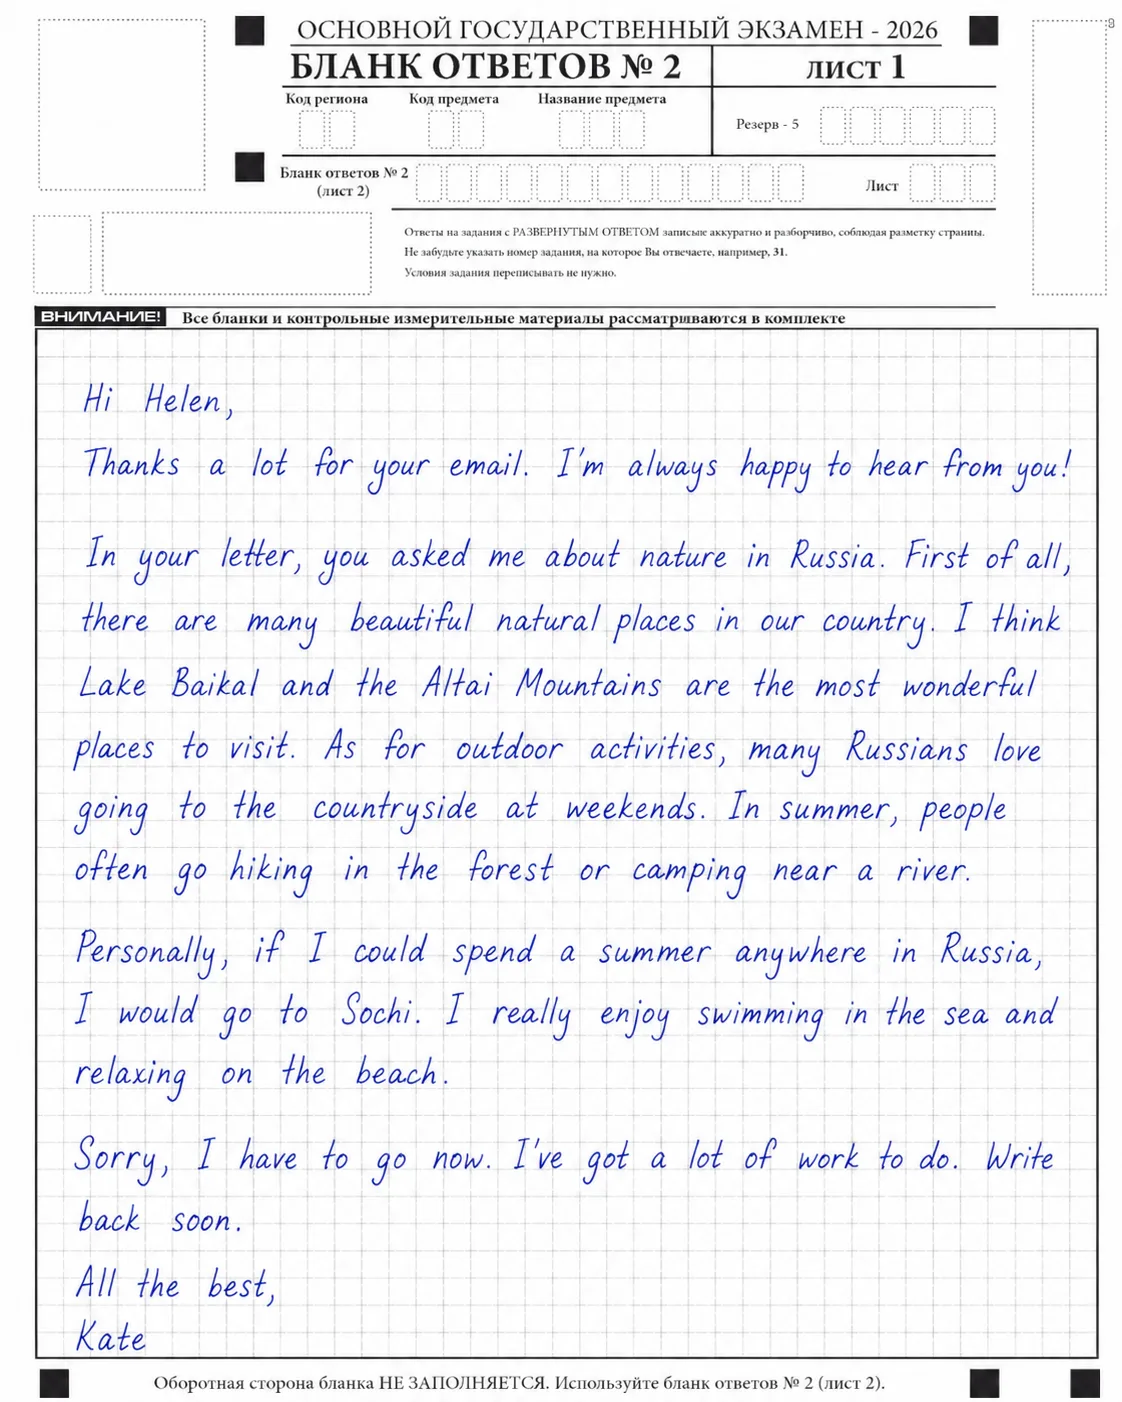 ОСНОВНОЙ ГОСУДАРСТВЕННЫЙ ЭКЗАМЕН - 2026
БЛАНК ОТВЕТОВ № 2
ЛИСТ 1
Код региона
Код предмета
Название предмета
Резерв - 5
Бланк ответов № 2
(лист 2)
Лист
Ответы на задания с РАЗВЕРНУТЫМ ОТВЕТОМ записыте аккуратно и разборчиво, соблюдая разметку страниы.
Не забудьте указать номер задания, на которое Вы отвечаете, например, 31.
Условия задания переписывать не нужно.
ВНИМАНИЕ! Все бланки и контрольные измерительные материалы рассматрıваются в комплекте
Hi Helen,
Thanks a lot for your email. I'm always happy to hear from you!
In your letter, you asked me about nature in Russia. First of all,
there are many beautiful natural places in our country. I think
Lake Baikal and the Altai Mountains are the most wonderful
places to visit. As for outdoor activities, many Russians love
going to the countryside at weekends. In summer, people
often go hiking in the forest or camping near a river.
Personally, if I could spend a summer anywhere in Russia,
I would go to Sochi. I really enjoy swimming in the sea and
relaxing on the beach.
Sorry, I have to go now. I've got a lot of work to do. Write
back soon.
All the best,
Kate
Оборотная сторона бланка НЕ ЗАПОЛНЯЕТСЯ. Используйте бланк ответов № 2 (лист 2).